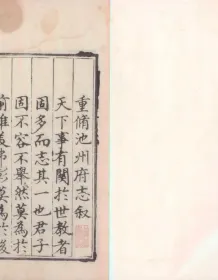 重脩池州府志叙
天下事有関於世教者
固多而志其一也君子
固不容不舉然莫為於
前雖美弗彰莫為於後